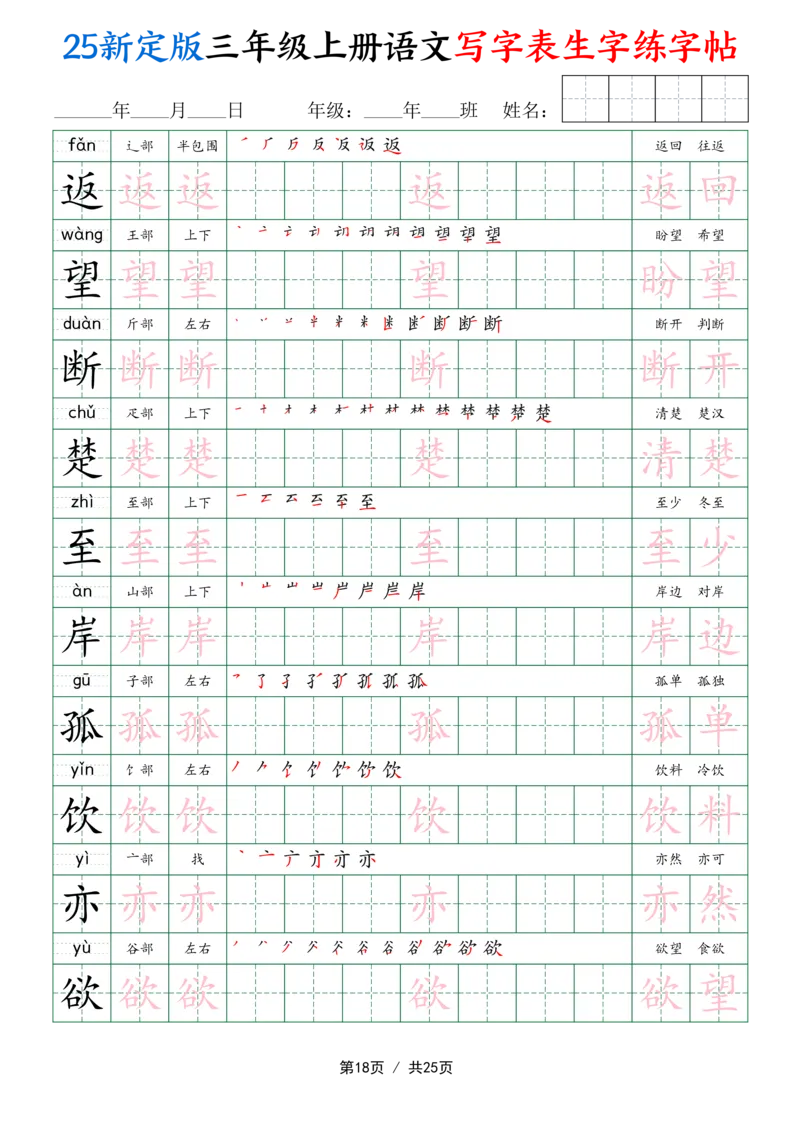 25新定版三年级上册语文写字表生字练字帖
____年____月____日 年级：____年____班 姓名：
fǎn 辶部 半包围 返回 往返
返 返 返 返 返 回
wàng 王部 上下 盼望 希望
望 望 望 望 盼 望
duàn 斤部 左右 断开 判断
断 断 断 断 断 开
chǔ 疋部 上下 清楚 楚汉
楚 楚 楚 楚 清 楚
zhì 至部 上下 至少 冬至
至 至 至 至 至 少
àn 山部 上下 岸边 对岸
岸 岸 岸 岸 岸 边
gū 子部 左右 孤单 孤独
孤 孤 孤 孤 孤 单
yǐn 饣部 左右 饮料 冷饮
饮 饮 饮 饮 饮 料
yì 亠部 找 亦然 亦可
亦 亦 亦 亦 亦 然
yù 谷部 左右 欲望 食欲
欲 欲 欲 欲 欲 望
第18页 / 共25页